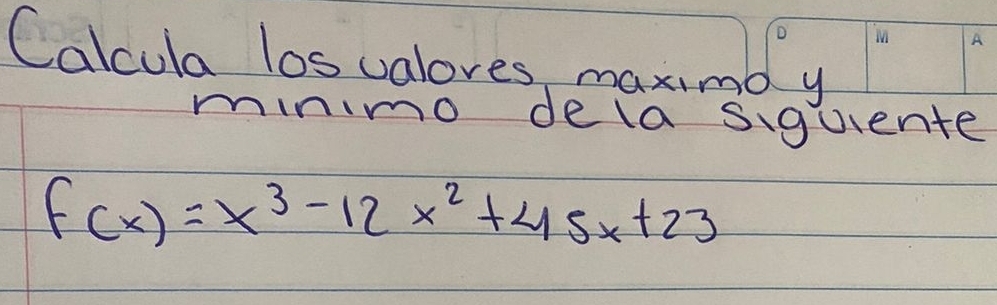 D M A
Calcula los valores maximo y
minimo de la siguiente
f(x) = x³ - 12 x² + 45x + 23